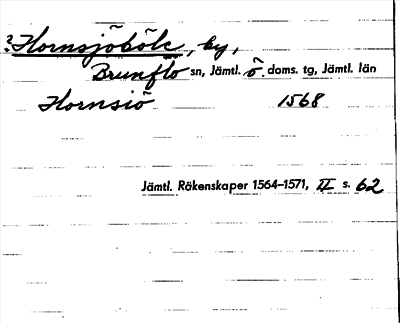 ?Hornsjöböle, by,
Brunflo sn, Jämtl. ö. doms. tg, Jämtl. län
Hornsiö 1568
Jämtl. Räkenskaper 1564–1571, II s. 62